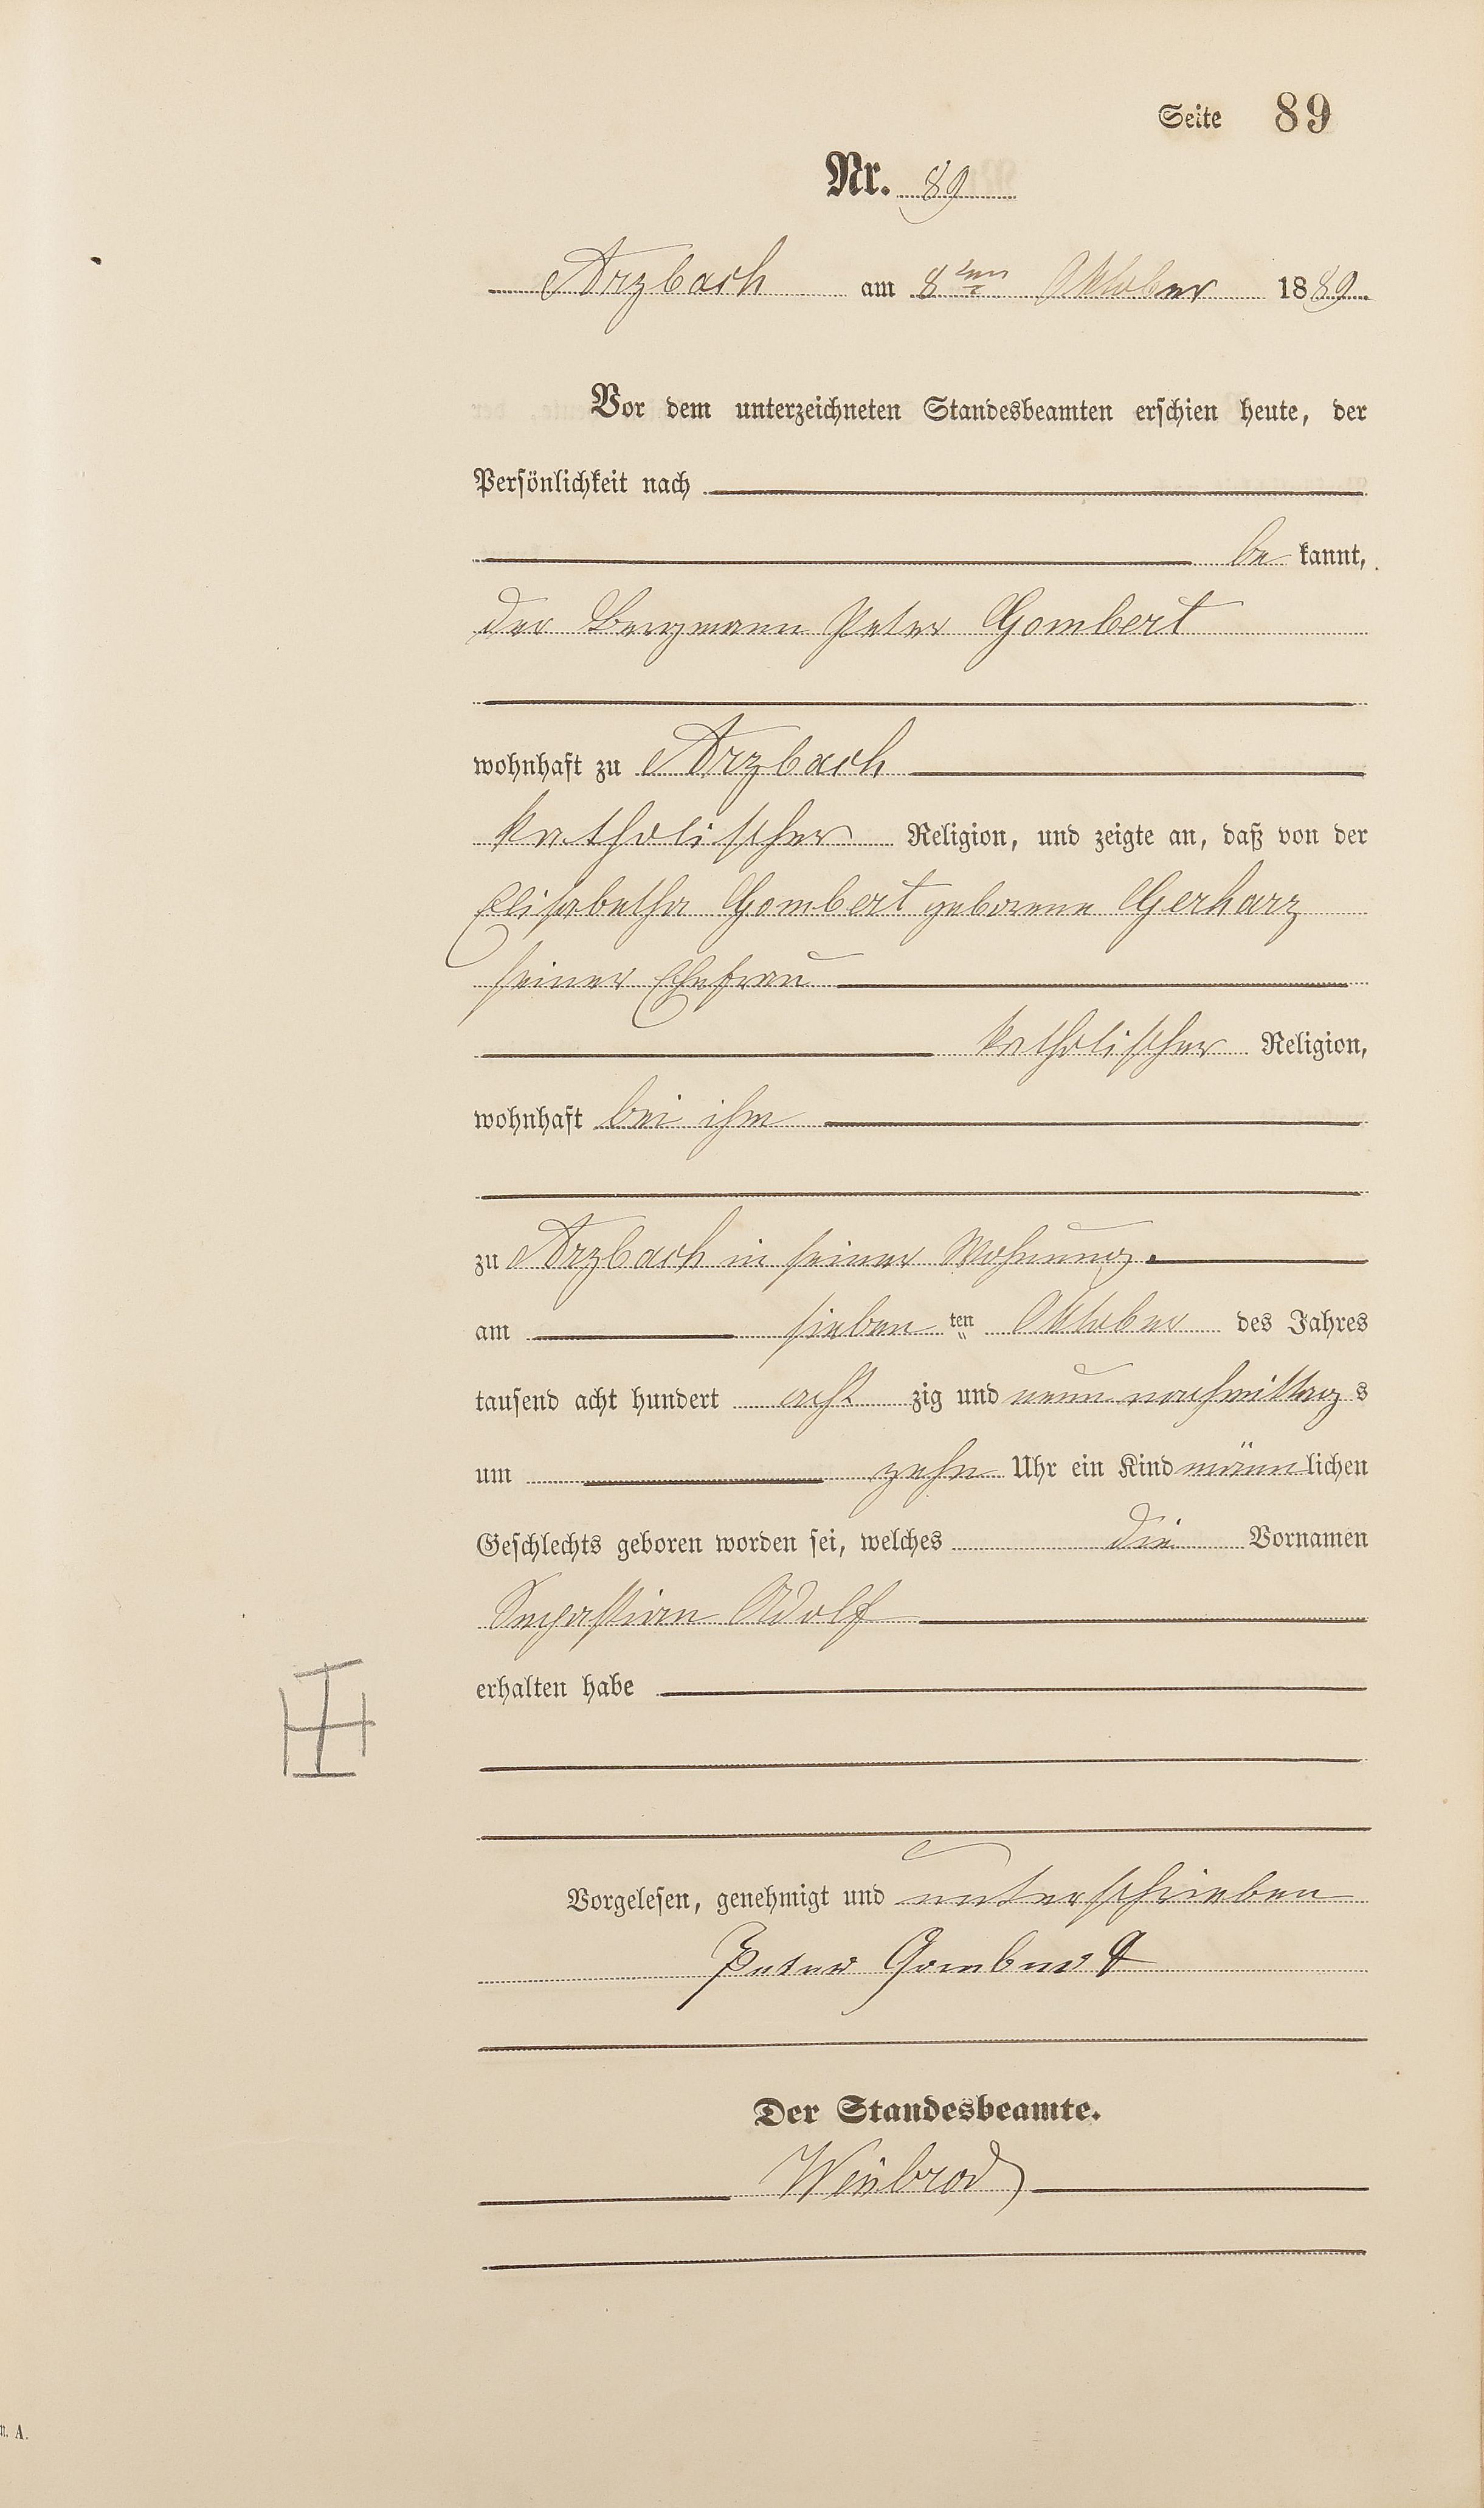 Seite 89
Nr. 89
Arzbach am 8ten Oktober 1889.
Vor dem unterzeichneten Standesbeamten erschien heute, der
Persönlichkeit nach
be kannt,
der Bergmann Peter Gombert
wohnhaft zu Arzbach
katholischer Religion, und zeigte an, daß von der
Elisabetha Gombert geborene Gerharz
seiner Ehefrau
katholischer Religion,
wohnhaft bei ihm
zu Arzbach in seiner Wohnung.
am sieben ten Oktober des Jahres
tausend acht hundert acht zig und neun nachmittag s
um zehn Uhr ein Kind männ lichen
Geschlechts geboren worden sei, welches die Vornamen
Adolf
erhalten habe
Vorgelesen, genehmigt und unterschrieben
Peter Gombert
Der Standesbeamte.
n. A.